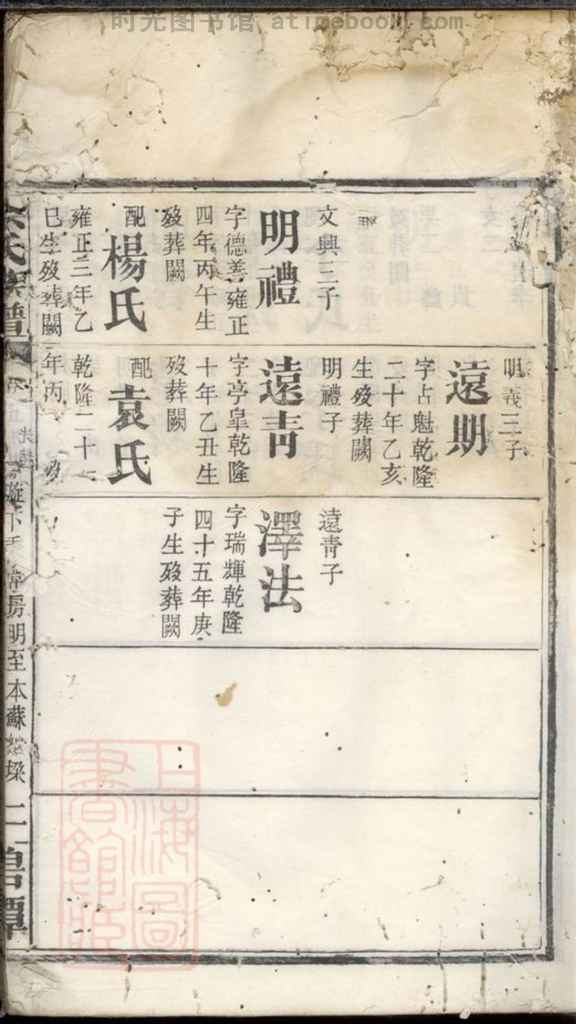 时光图书馆 atimebook.com
文興三子
明禮
字德善雍正
四年丙午生
歿葬闕
配
楊氏
雍正三年乙
巳生歿葬闕
明義三子
遠期
字占魁乾隆
二十年乙亥
生歿葬闕
明禮子
遠青
字亭皐乾隆
十年乙丑生
歿葬闕
配
袁氏
乾隆二十
年丙
遠青子
澤法
字瑞輝乾隆
四十五年庚
子生歿葬闕
氏族譜
房明至本蘇
上海圖書館藏